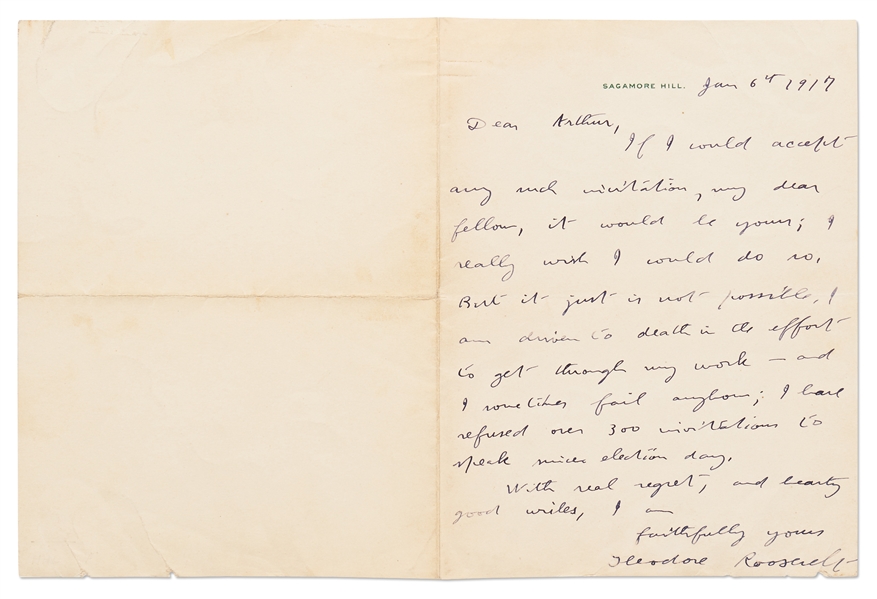 SAGAMORE HILL. Jan 6th 1917
Dear Arthur,
If I could accept
any such invitation, my dear
fellow, it would be yours; I
really wish I could do so.
But it just is not possible. I
am driven to death in the effort
to get through my work — and
I sometimes fail anyhow; I have
refused over 300 invitations to
speak since election day.
With real regret, and hearty
good wishes, I am
faithfully yours
Theodore Roosevelt